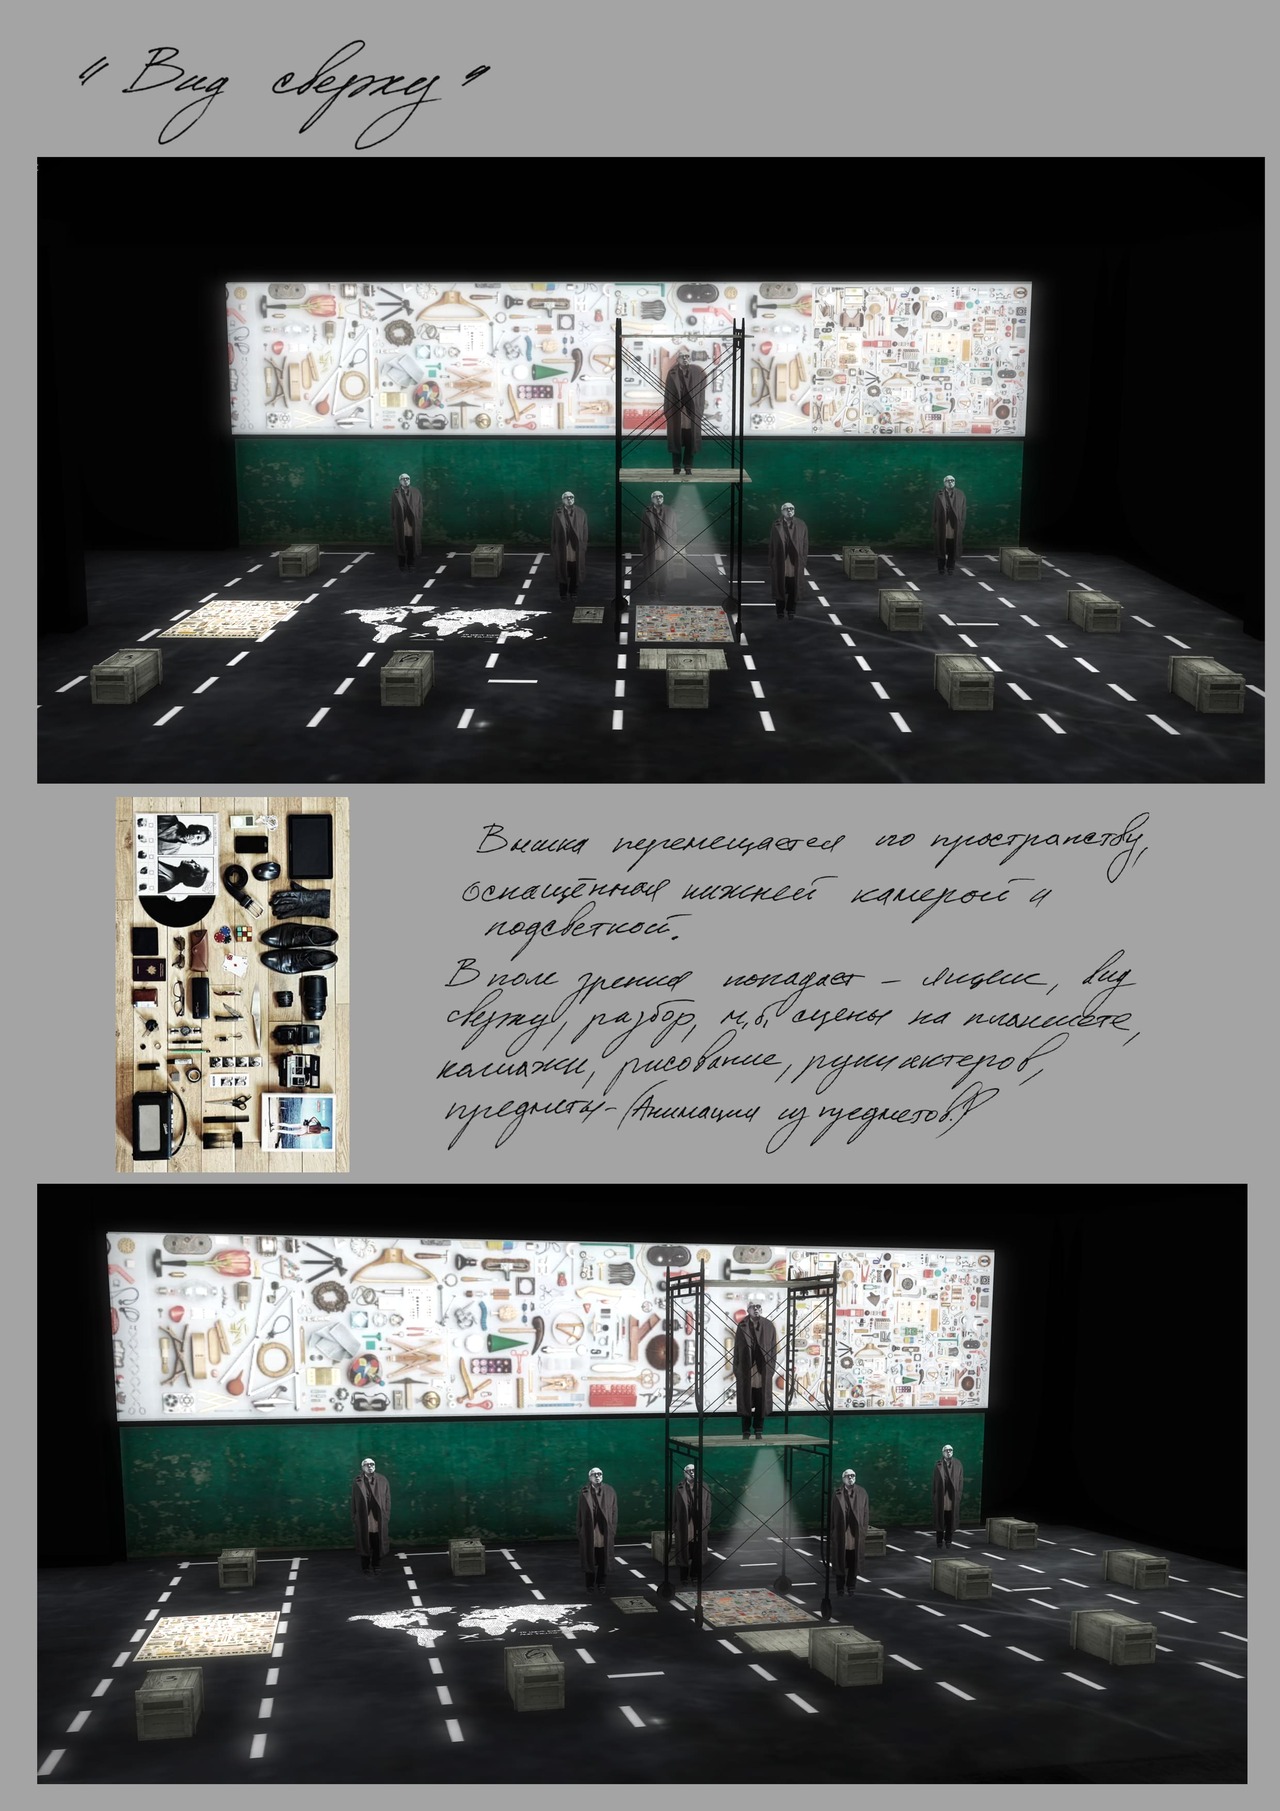 "Вид сверху"
Вышка перемещается по пространству,
оснащённая нижней камерой и
подсветкой.
В поле зрения попадает – ящик, вид
сверху, разбор, м.б. сцены на планшете,
коллажи, рисование, руки актеров,
предметы - (Анимация из предметов!)